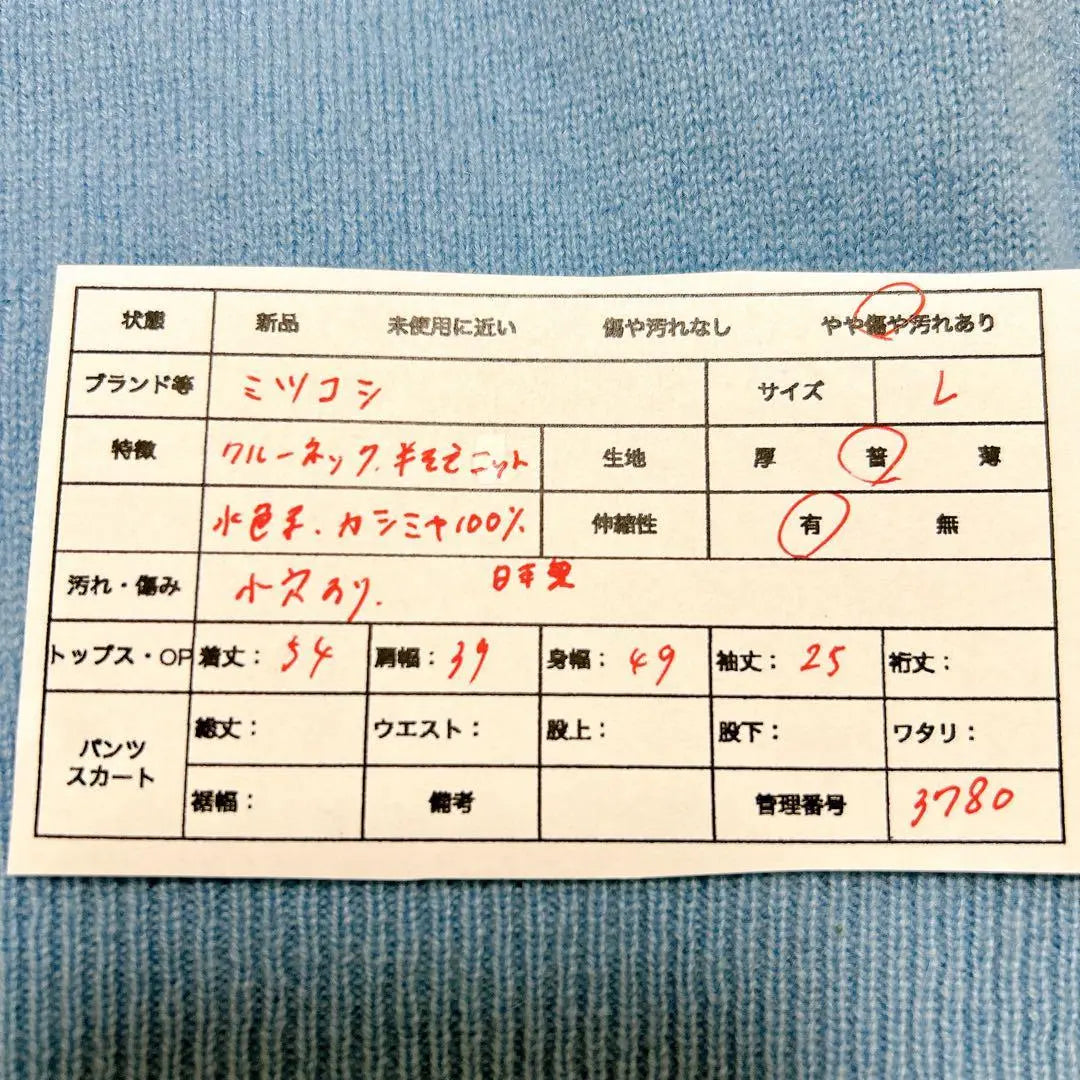 状態 新品 未使用に近い 傷や汚れなし やや傷や汚れあり
ブランド等 ミツコシ サイズ L
特徴 クルーネック.半そでニット 生地 厚 普 薄
水色系.カシミヤ100% 伸縮性 有 無
汚れ・傷み 小穴あり. 日本製
トップス・OP 着丈:54 肩幅:39 身幅:49 袖丈:25 裄丈:
パンツ スカート 総丈: ウエスト: 股上: 股下: ワタリ:
裾幅: 備考 管理番号 3780